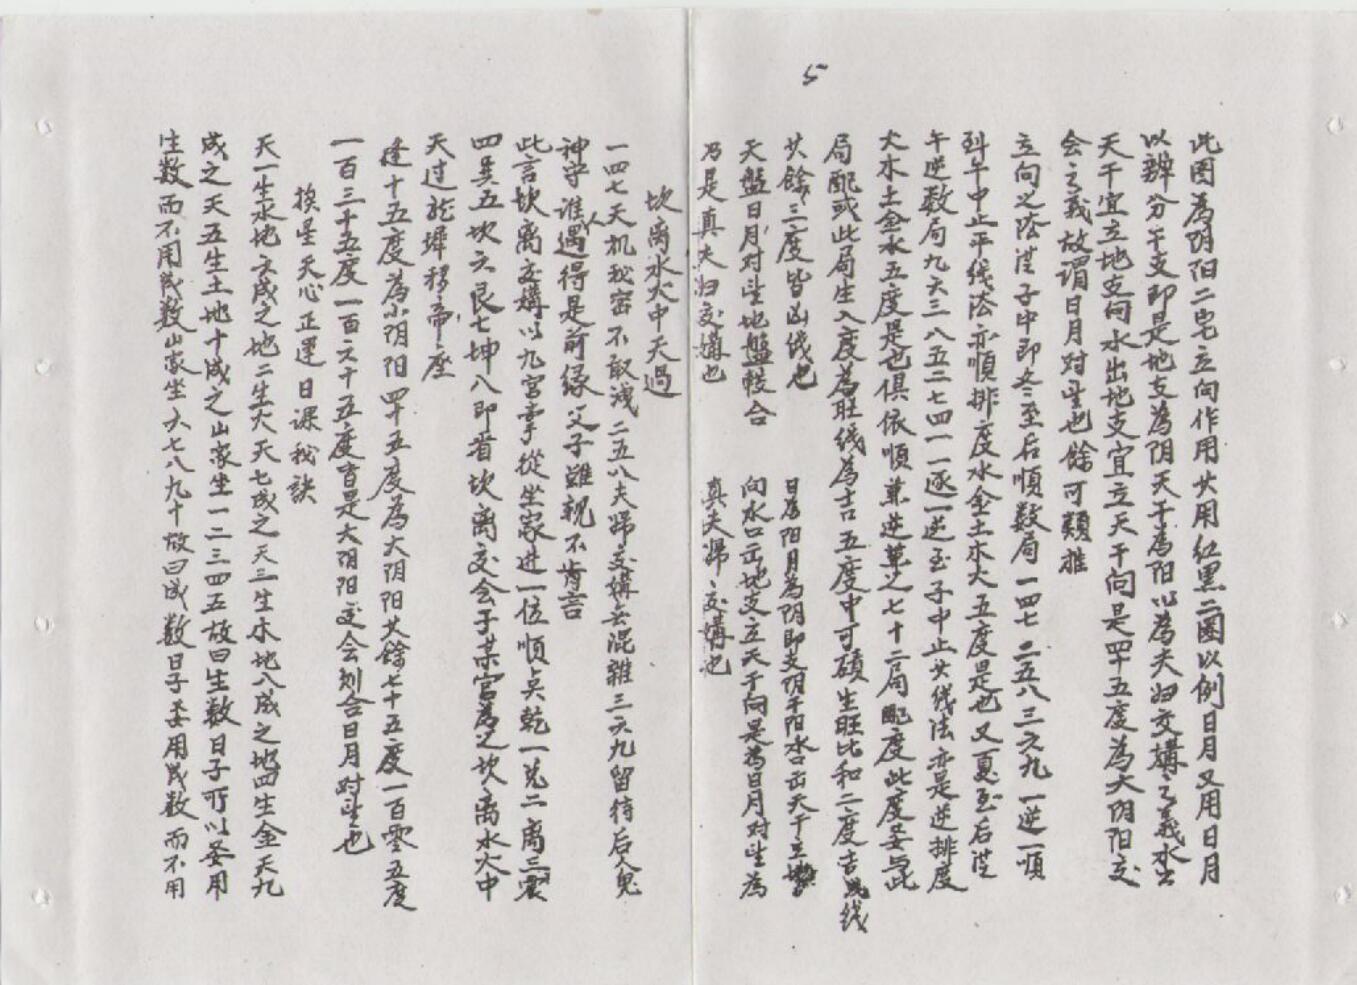 5
此图為阴阳二宅立向作用廾用红黑二圈以例日月又用日月
以辨分干支即是地支為阴天干為阳以為夫妇交媾之義水出
天干宜立地支向水出地支宜立天干向是四十五度為大阴阳交
会之義故谓日月对望也餘可類推
立向之陰從子中即冬至后順数局一四七二五八三六九一逆一順
到午中止平线法亦順排度水金土木火五度是也又夏至后從
午逆数局九六三八五二七四一一逐一逆至子中止廾线法亦是逆排度
火木土金水五度是也俱依順兼逆兼之七十二局配度此度要与此
局配或此局生入度為旺线為吉五度中可碩生旺比和二度吉线
廾餘三度皆凶线也 日為阳月為阴即支阴干阳水口出天干立地
天盤日月对望地盤較合 向水口出地支立天干向是為日月对望為
乃是真夫妇交媾也 真夫婦交媾也
坎离水火中天過
一四七天机秘密不敢浅二五八夫婦交媾去混雜三六九留待后人鬼
神守谁人遇得是前缘父子雖親不肯言
此言坎离交媾以九宫掌從坐家進一位順点乾一兑二离三震
四巽五坎六艮七坤八即看坎离交会于某宫為之坎离水火中
天过龙墀移帝座
逢十五度為小阴阳四十五度為大阴阳廾餘七十五度一百零五度
一百三十五度一百六十五度皆是大阴阳交会刻合日月对望也
挨星天心正運日课秘訣
天一生水地六成之地二生火天七成之天三生木地八成之地四生金天九
成之天五生土地十成之山家坐一二三四五故曰生数日子可以要用
生数而不用成数山家坐六七八九十故曰成数日子要用成数而不用